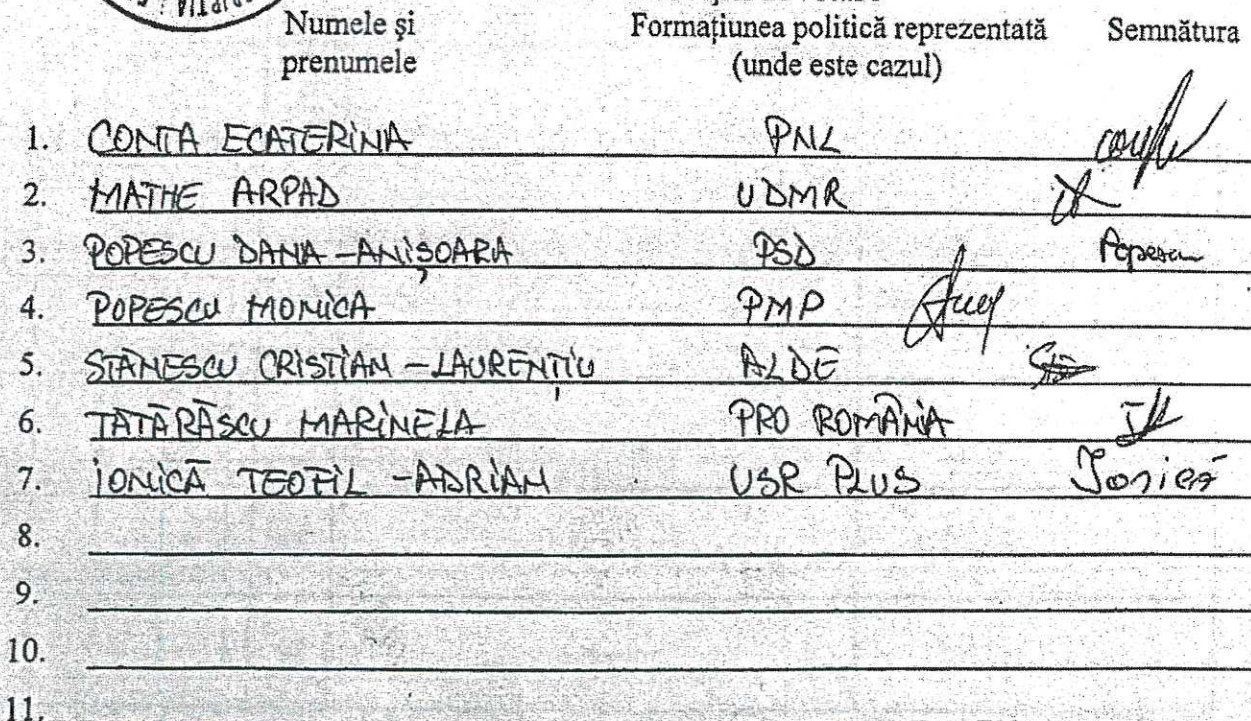 Numele și prenumele Formațiunea politică reprezentată (unde este cazul) Semnătura
1. CONTA ECATERINA PNL
2. MATHE ARPAD UDMR
3. POPESCU DANA-ANIȘOARA PSD Popescu
4. POPESCU MONICA PMP
5. STĂNESCU CRISTIAN-LAURENȚIU ALDE
6. TĂTĂRĂSCU MARINELA PRO ROMÂNIA
7. IONICĂ TEOFIL-ADRIAN USR PLUS Ionică
8.
9.
10.
11.